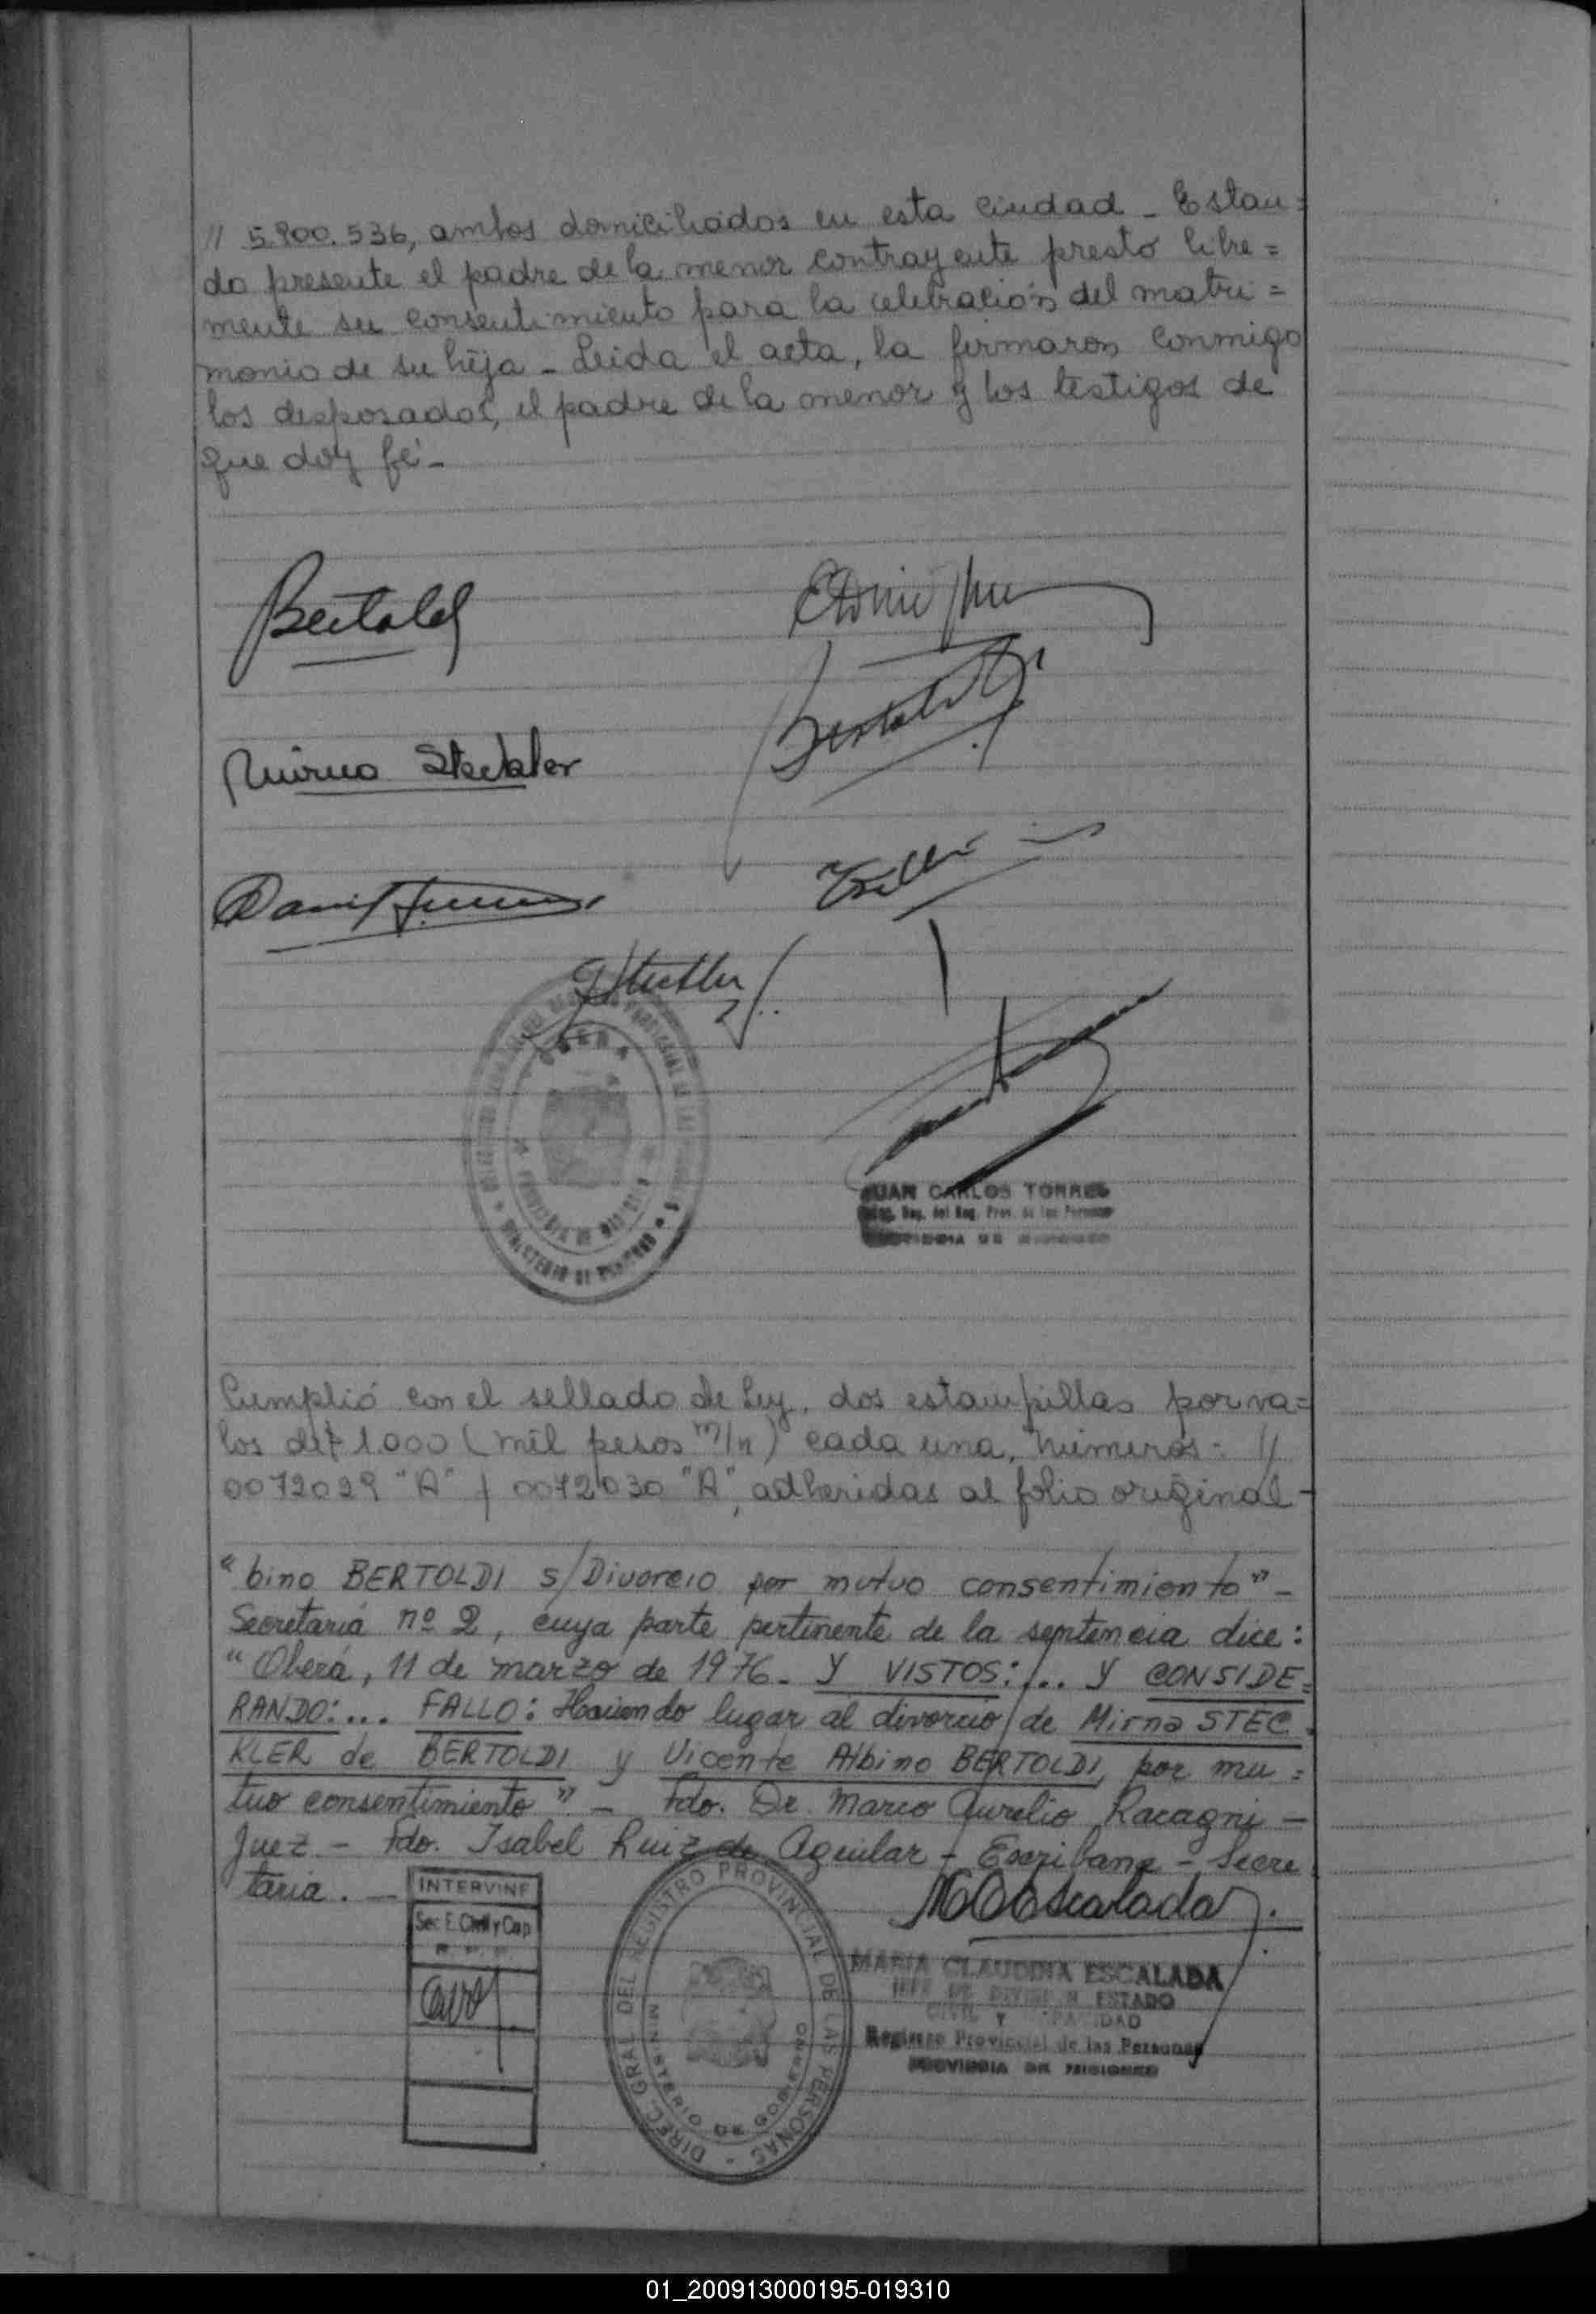 // 5.900.536, ambos domiciliados en esta ciudad - Estan=
do presente el padre de la menor contrayente prestó libre=
mente su consentimiento para la celebración del matri=
monio de su hija - Leida el acta, la firmaron conmigo
los desposados, el padre de la menor y los testigos de
que doy fé -
Bertoldi
Mirna Steckler
JUAN CARLOS TORRES
Cumplió con el sellado de Ley, dos estampillas por va=
los de $ 1.000 (mil pesos m/n) cada una, números: //
0072029 "A" y 0072030 "A", adheridas al folio original -
"bino BERTOLDI s/Divorcio por mutuo consentimiento" -
Secretaría nº 2, cuya parte pertinente de la sentencia dice:
"Oberá, 11 de marzo de 1976. Y VISTOS: ... Y CONSIDE=
RANDO: ... FALLO: Haciendo lugar al divorcio de Mirna STEC
KLER de BERTOLDI y Vicente Albino BERTOLDI, por mu=
tuo consentimiento" - Fdo. Dr. Marco Aurelio Racagni -
Juez - Fdo. Isabel Ruiz de Aguilar - Escribana - Secre
taria. -
INTERVINE
Sec E. Civil y Cap
DIREC. GRAL DEL REGISTRO PROVINCIAL DE LAS PERSONAS
MINISTERIO DE GOBIERNO
MCEscalada
MARIA CLAUDINA ESCALADA
JEFE DE DIVISION ESTADO
CIVIL Y CAPACIDAD
Registro Provincial de las Personas
PROVINCIA DE MISIONES
01_200913000195-019310